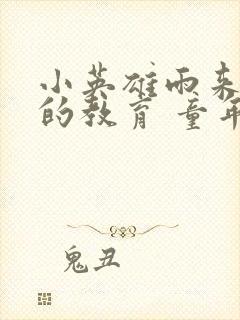 小英雄雨来
的教育 童年
鬼丑